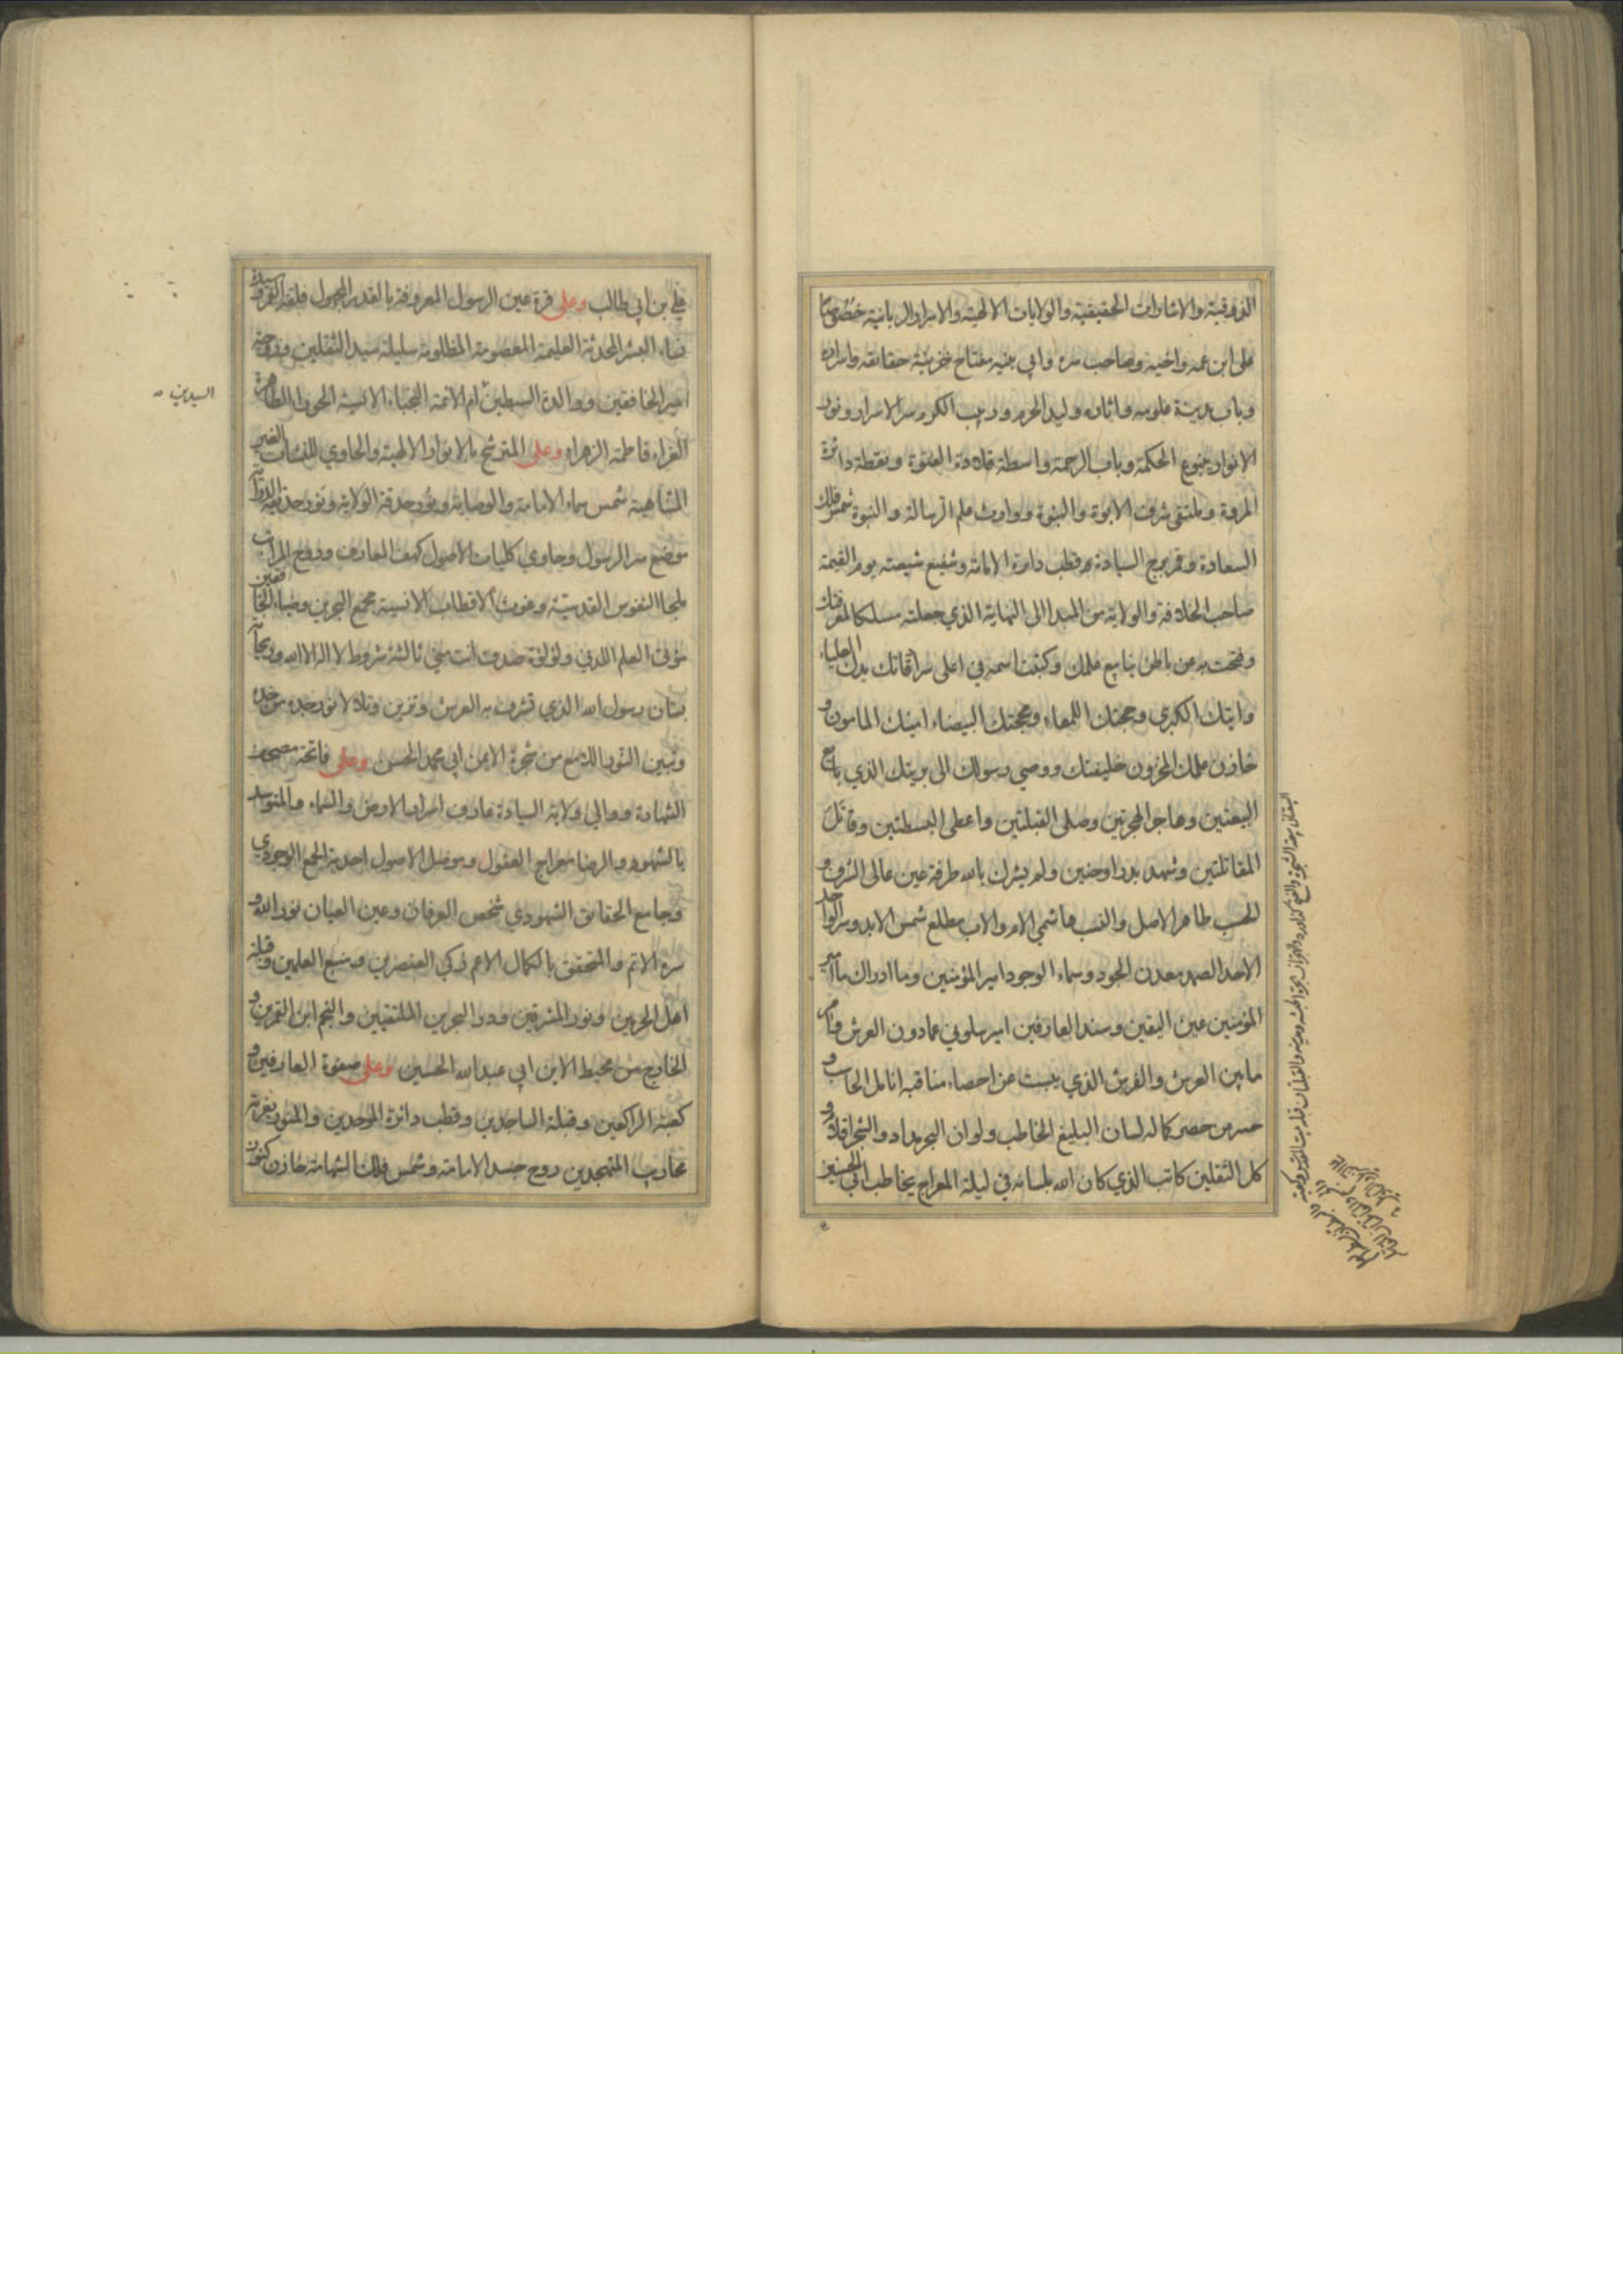 الذوقية والاشارات الحقيقية والولايات الالهية والاسرار الربانية خصوصا
على ابن عمه واخيه وصاحب سره وابي بنيه مفتاح خزينة حقائقه واسراره
وباب مدينة علومه واثاره وليد الحرم وربيب الكرم سر الاسرار ونور
الانوار ينبوع الحكمة وباب الرحمة واسطة قلادة الفتوة ونقطة دائرة
المروة وملتقى شرف الابوة والبنوة ووارث علم الرسالة والنبوة شمس فلك
السعادة وقمر برج السيادة قطب دايرة الامامة وشفيع شيعته يوم القيمة
صاحب الخلافة والولاية من المبدا الى النهاية الذي جعلته مسلكا لمعرفتك
وفتحت به من باطن ينابيع علمك وكتبت اسمه في اعلى سرادقاتك يدك العلياء
وايتك الكبرى وحجتك اللمعاء ومحجتك البيضاء امينك المامون و
خازن علمك المخزون خليفتك ووصي رسولك الى بريتك الذي بايع
البيعتين وهاجر الهجرتين وصلى القبلتين واعطى البسطتين وقاتل
المقاتلتين وشهد بدرا وحنين ولم يشرك بالله طرفة عين عالى الشرف و
الحسب طاهر الاصل والنسب هاشمي الام والاب مطلع شمس الابد وسر الواحد
الاحد الصمد معدن الجود وسماء الوجود امير المؤمنين وما ادراك ما امير
المؤمنين عين اليقين وسند العارفين امير سلوني عمادون العرش فنام
مابين العرش والفرش الذي يبست عن احصاء مناقبه انامل الحاسب و
حسر من حصر كماله لسان البليغ الخاطب ولو ان البحر مداد والشجر اقلام و
كل الثقلين كاتب الذي كان الله بلسانه في ليلة المعراج يخاطب ابي الحسنين
علي بن ابي طالب وعلى قرة عين الرسول المعروفة بالقدر المجهول فلقة القمر وسيدة
نساء البشر المحدثة العليمة المعصومة المظلومة سليلة سيد الثقلين وزوجة
امير الخافقين ووالدة السبطين ام الائمة النجباء الانسية الحوراء الطاهرة
السيدين
الغراء فاطمة الزهراء وعلى المترشح بالانوار الالهية والحاوي للنشات الغير
المتناهية شمس سماء الامامة والوصاية ونور حدقة الولاية ونور حديقة الدراية
موضع سر الرسول وحاوي كليات الاصول كهف المعارف وروح المراتب
ملجا النفوس القدسية وغوث الاقطاب الانسية مجمع البحرين وضياء الخافقين
مؤتى العلم اللدني ولؤلؤة صدف انت مني ثالثة شروط لا اله الا الله وريحانة
بستان رسول الله الذي تشرف به العرش وتزين وتلالا نور جده من خده
وتبين النور اللامع من شجرة الايمن ابي محمد الحسن وعلى فاتحة مصحف
الشهادة ووالي ولاية السيادة عارف اسرار الارض والسماء والمتوسد
بالشهود والرضا معراج العقول وموصل الاصول احدية الجمع الوجودي
وجامع الحقائق الشهودي شخص العرفان وعين العيان نور الله و
سره الاتم والمتحقق بالكمال الاعم زكي العنصرين ومنبع العلمين وقبلة
اهل الحرمين ونور المشرقين ودر البحرين الملتقيين والنجم ابن القمرين و
الخارج من محيط الابن ابي عبد الله الحسين وعلى صفوة العارفين و
كعبة الراكعين وقبلة الساجدين وقطب دائرة الموحدين والمنور بغرته
محاريب المتهجدين روح جسد الامامة وشمس فلك الشهامة خازن كنوز